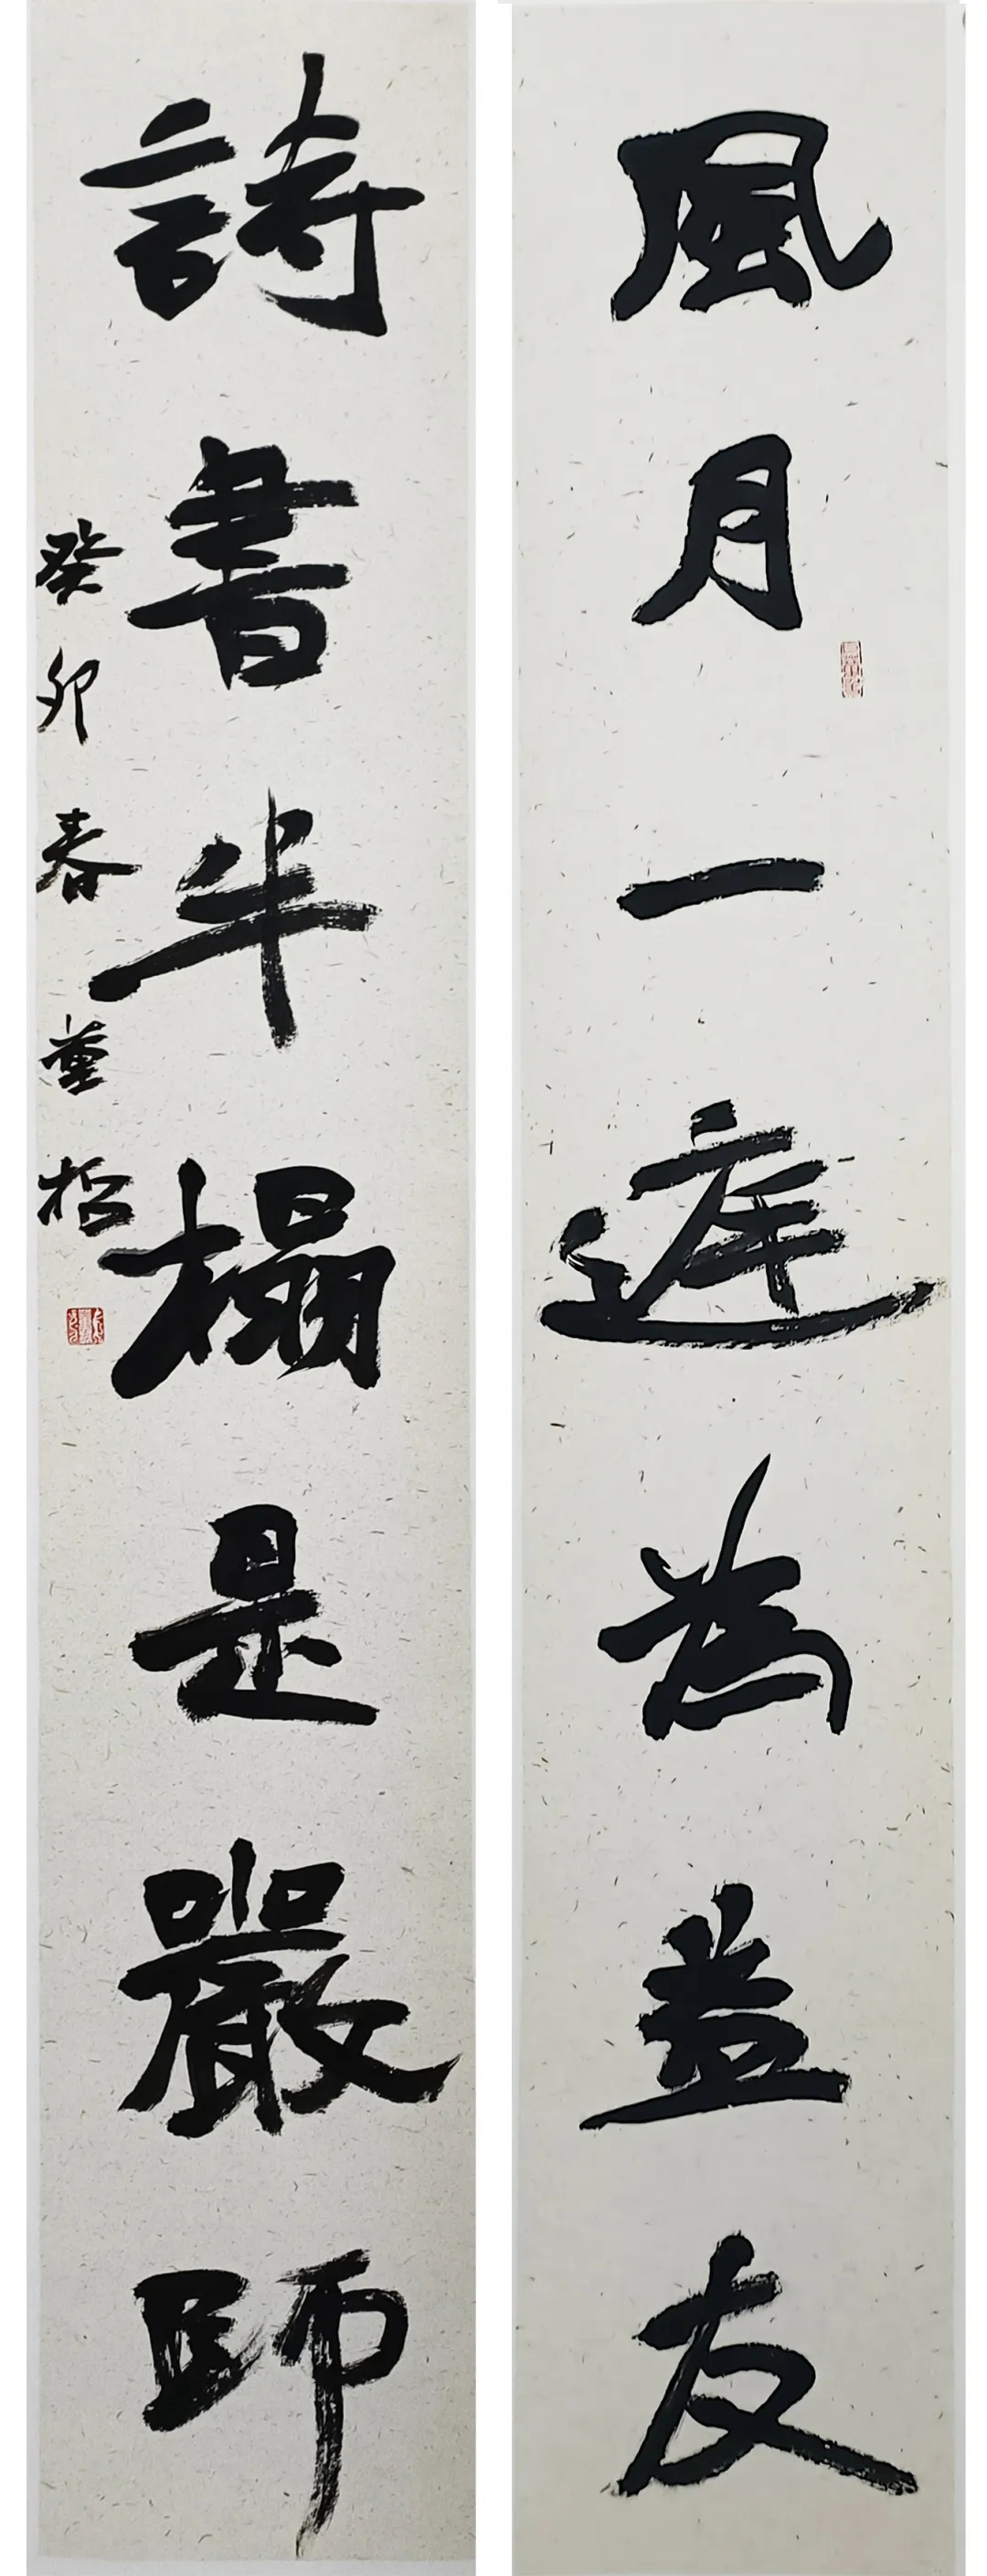 風月一庭為益友
詩書半榻是嚴師
癸卯春董松